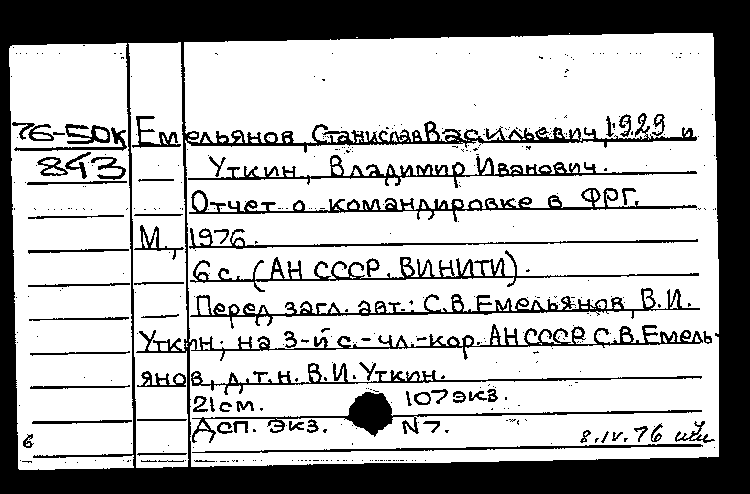 76-50к Емельянов, Станислав Васильевич, 1929 и
843 Уткин, Владимир Иванович.
Отчет о командировке в ФРГ.
М., 1976.
6 с. (АН СССР. ВИНИТИ).
Перед загл. авт.: С.В.Емельянов, В.И.
Уткин; на 3-й с.-чл.-кор. АН СССР С.В.Емель-
янов, д.т.н. В.И.Уткин.
21см. 107экз.
Дсп. экз. N7.
6 8.IV.76